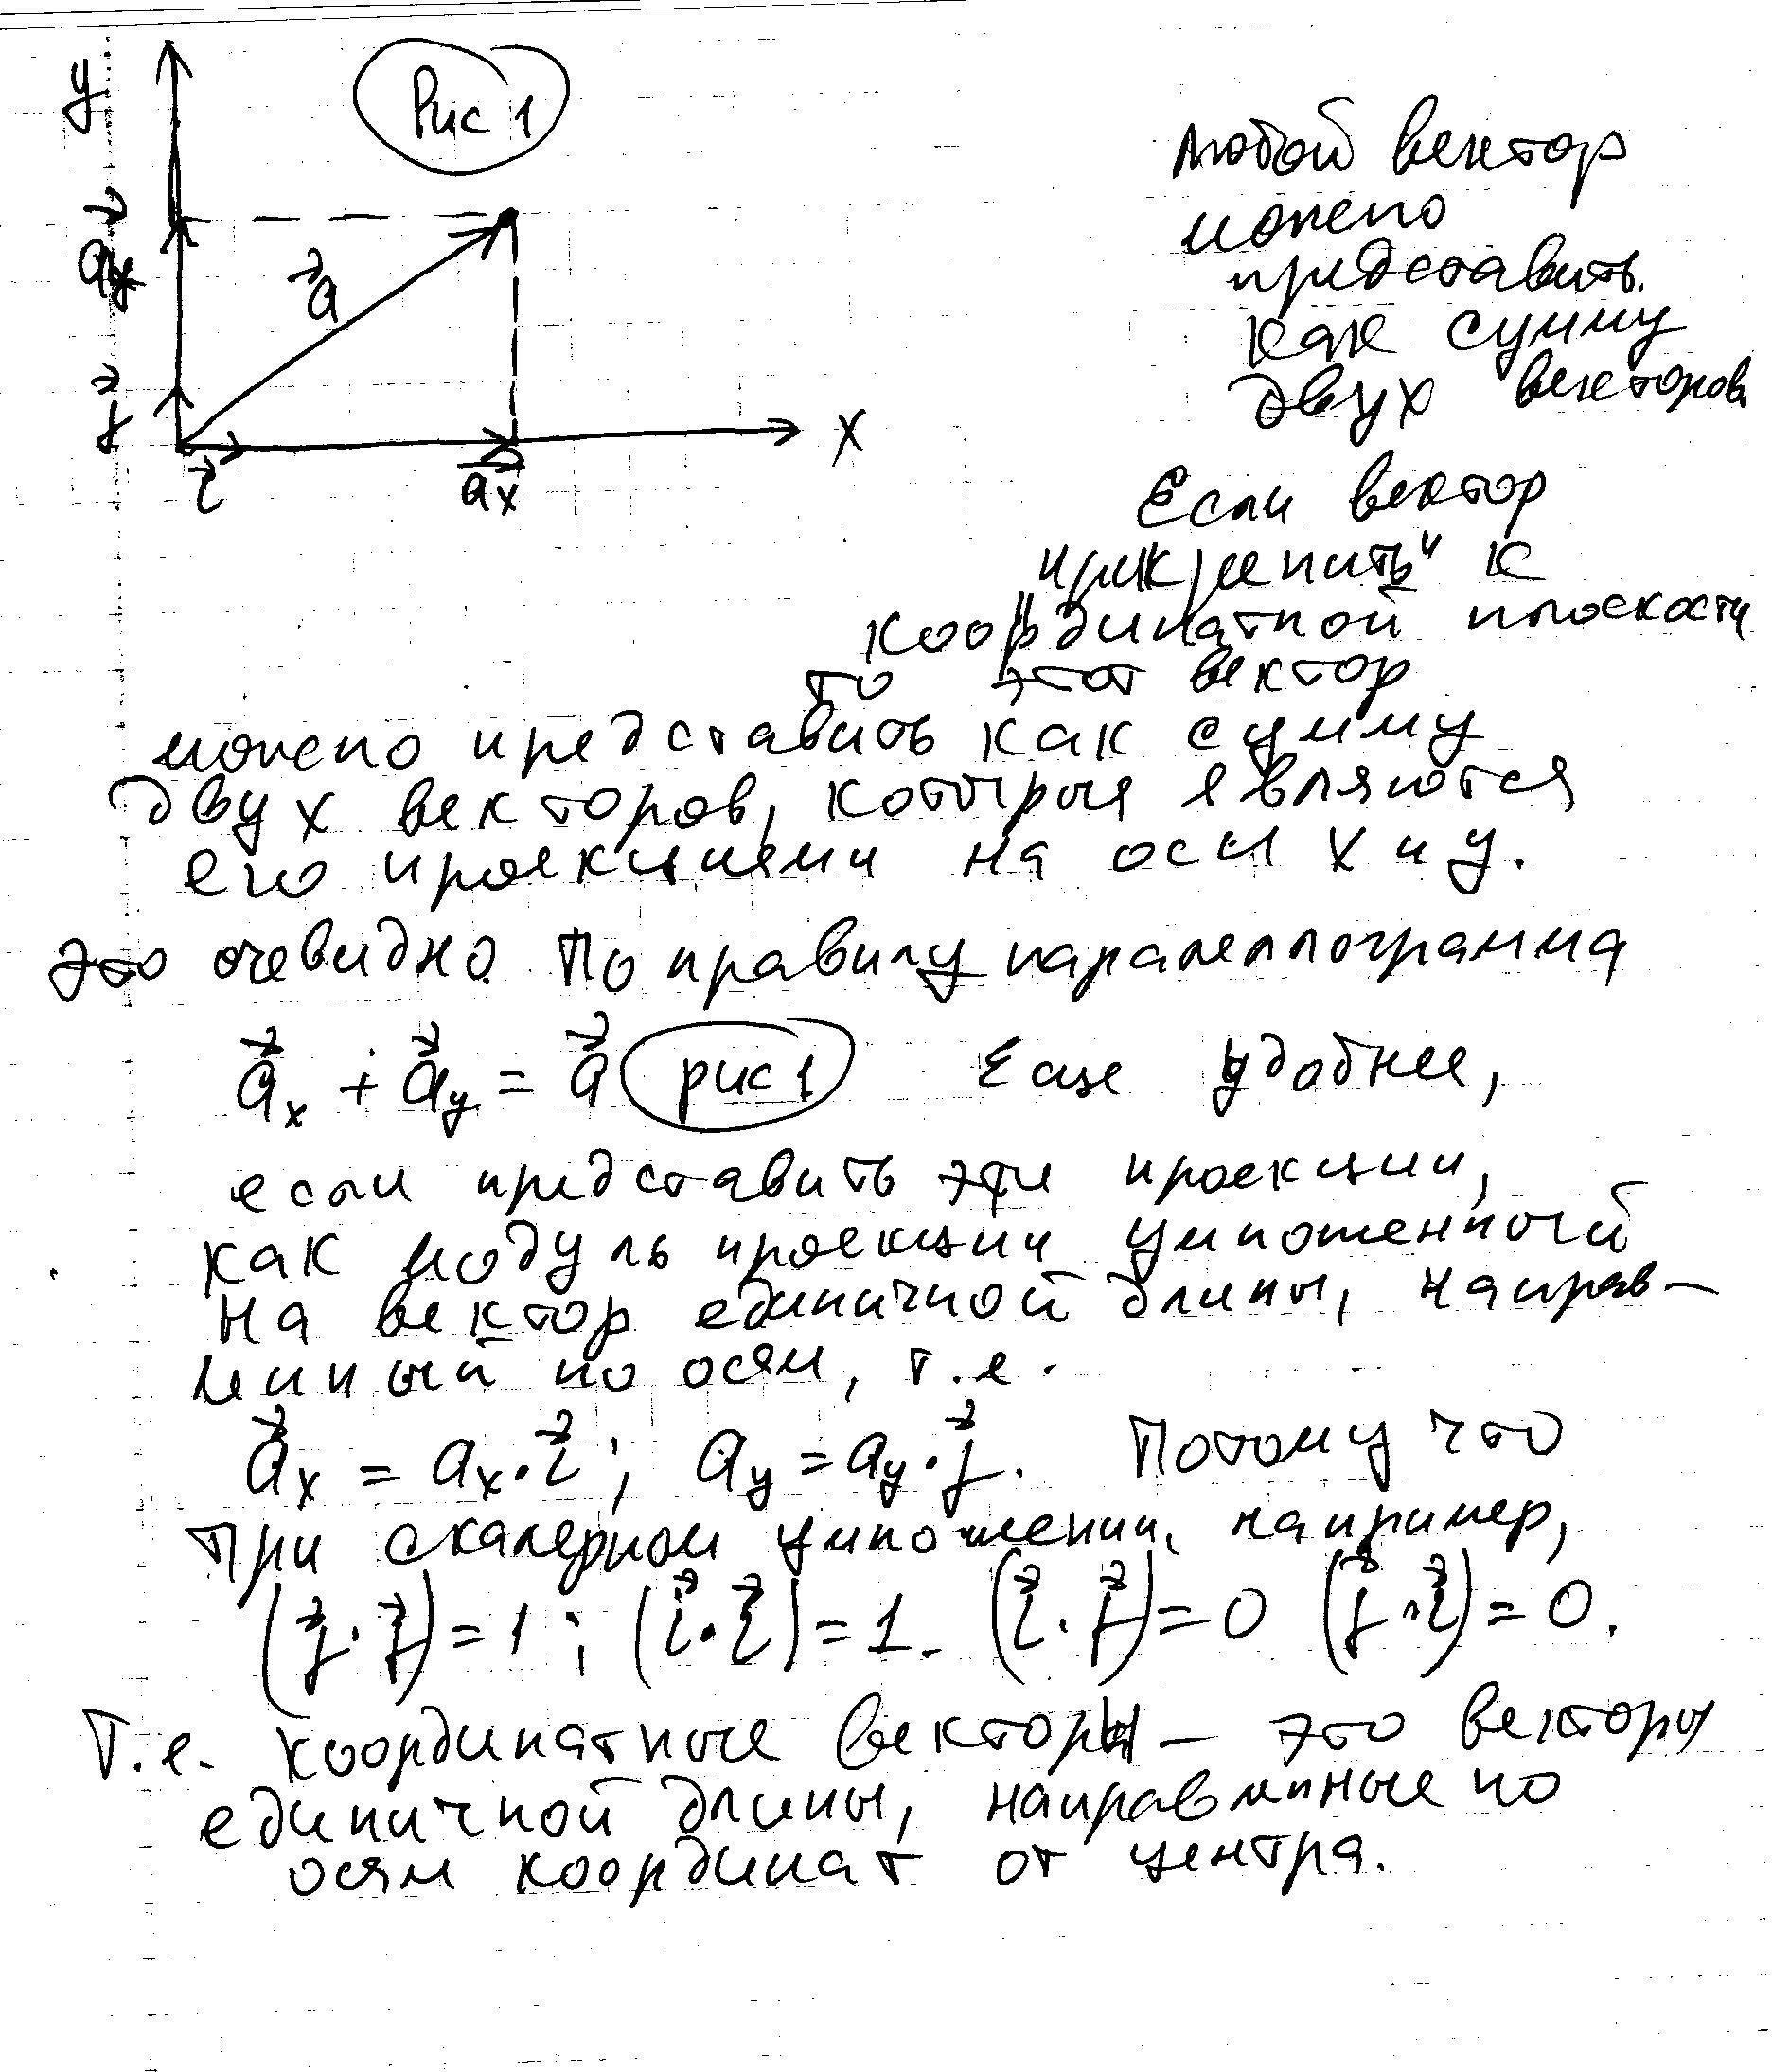 y
Рис 1
a⃗y
a⃗
j⃗
i⃗
a⃗x
x
любой вектор
можно
представить
как сумму
двух векторов
Если вектор
"прикрепить" к
координатной плоскости
то этот вектор
можно представить как сумму
двух векторов, которые являются
его проекциями на оси x и y.
это очевидно. По правилу паралеллограмма
a⃗x + a⃗y = a⃗ рис 1 Еще удобнее,
если представить эти проекции,
как модуль проекции умноженный
на вектор единичной длины, направ-
ленный по осям, т.е.
a⃗x = ax · i⃗ ; ay = ay · j⃗. Потому что
при скалерном умножении, например,
(j⃗ · j⃗) = 1 ; (i⃗ · i⃗) = 1. (i⃗ · j⃗) = 0 (j⃗ · i⃗) = 0.
Т.е. координатные векторы – это векторы
единичной длины, направленные по
осям координат от центра.